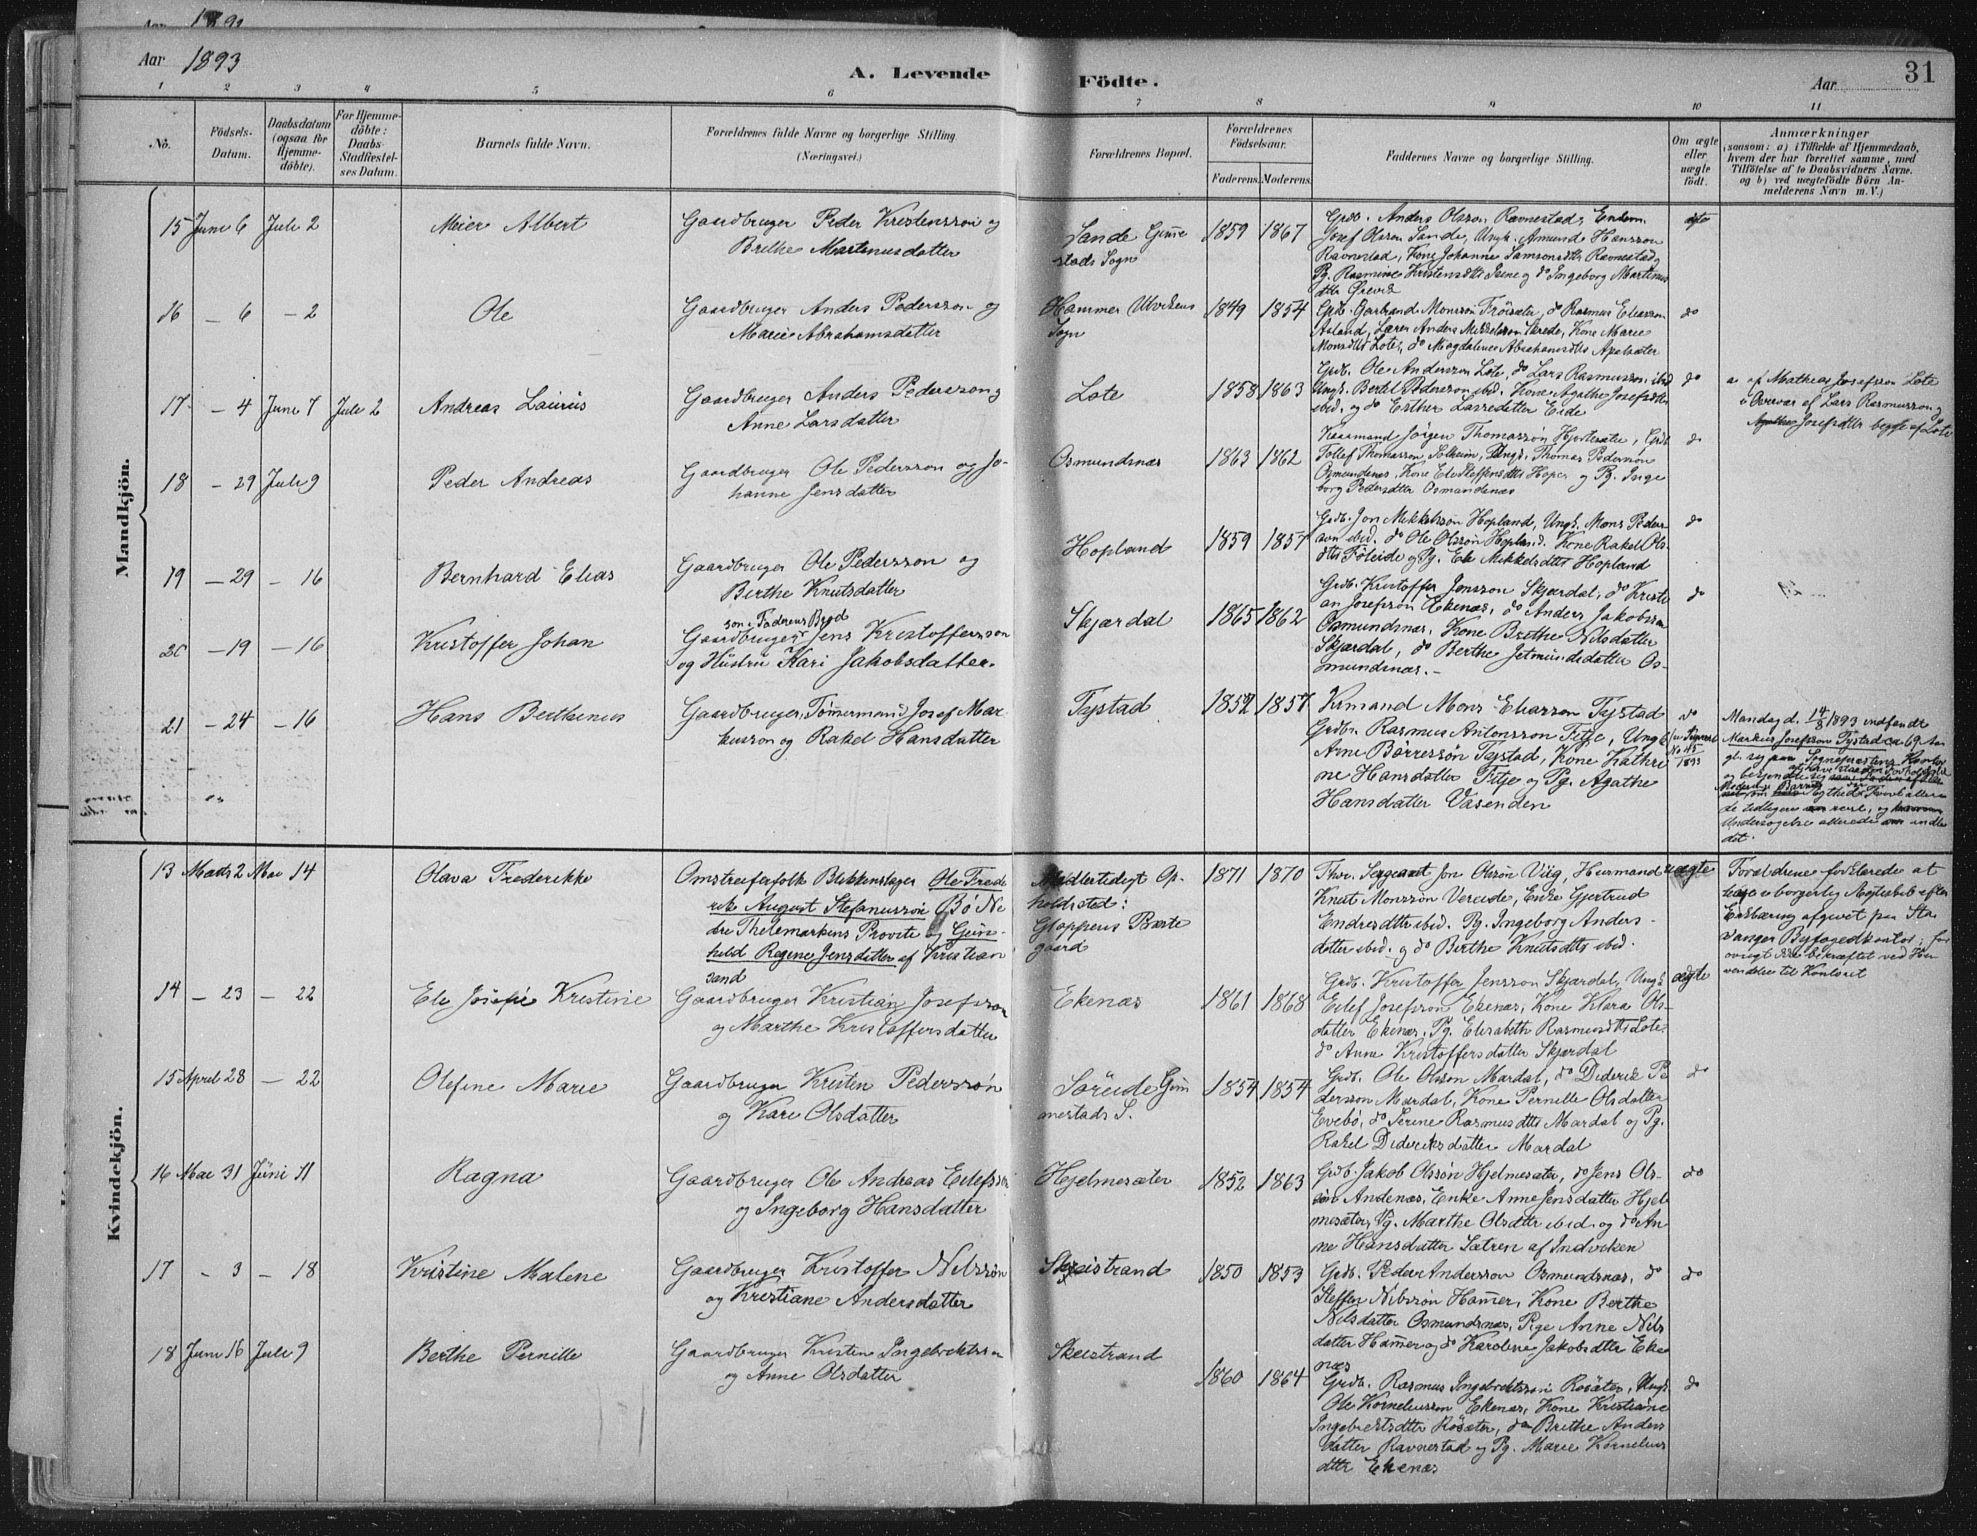 Aar 1893
A. Levende Födte.
Aar
31
1 2 3 4 5 6 7 8 9 10 11
No.
Födsels-
Datum.
Daabsdatum
(ogsaa for
Hjemme-
döbte).
For Hjemme-
döbte:
Daabs-
Stadfæstel-
ses Datum.
Barnets fulde Navn.
Forældrenes fulde Navne og borgerlige Stilling.
(Næringsvei.)
Forældrenes Bopæl.
Forældrenes
Födselsaar.
Faderens. Moderens.
Faddernes Navne og borgerlige Stilling.
Om ægte
eller
uægte
födt.
Anmærkninger
(saasom: a) i Tilfælde af Hjemmedaab,
hvem der har forrettet samme, med
Tilföielse af to Daabsvidners Navne.
og b) ved uægtefödte Börn An-
melderens Navn m. V.)
Mandkjön.
15 Juni 6 Juli 2
Meier Albert
Gaardbruger Peder Kristensson og
Brithe Martinusdatter
Sande Gimme
stads Sogn
1859 1867
Grdb. Anders Olsson Ravnestad,
Josef Olsson Sande, Ungk. Amund Hansson
Ravnestad, Kone Johanne Samsonsdtr Ravnestad,
Pg. Rasmine Kristensdtr og do Ingeborg Martinus
dttr
ægte
16 – 6 – 2
Ole
Gaardbruger Anders Pedersson og
Marie Abrahamsdatter
Hammer Utvikens
Sogn
1849 1854
Grdb. Monsson do Rasmus Eliasson
Lærer Anders Mikkelsson Kone Marie
Monsdtr Lote, do Magdalene Abrahamsdtr Apelsæter
do
17 – 4 Juni 7 Juli 2
Andreas Laurus
Gaardbruger Anders Pedersson og
Anne Larsdatter
Lote
1858 1863
Grdb. Ole Andersson Lote, do Lars Rasmusson ibid
Ungk. Bertel Pedersson ibid. Kone Agathe Josefsdttr
ibid. og do Esther Larsdatter Eide
do
a. af Mathias Josefsson Lote
i Overvær af Lars Rasmusson og
Agathe Josefsdttr begge af Lote
18 – 29 Juli 9
Peder Andreas
Gaardbruger Ole Pedersson og Jo-
hanne Jensdatter
Osmundsnæs
1863 1862
Kaarmand Jörgen Thomassön Hjortesæter, Grdb
Tollef Thomasson Solheim, Ungk. Thomas Pedersön
Osmundsnæs, Kone Steffensdttr Hope og Pg. Inge
borg Pedersdtter Osmundsnæs
do
19 – 29 – 16
Bernhard Elias
Gaardbruger Ole Pedersson og
Berthe Knutsdatter
Hopland
1859 1857
Grdb. Jon Mikkelsson Hopland, Ungk. Mons Peders
son ibid. do Ole Olsson Hopland. Kone Rakel Ols-
dttr Föleide og Pg. Eli Mikkelsdttr Hopland
do
20 – 19 – 16
Kristoffer Johan
son i Faderens Brød
Gaardbruger Jens Kristoffersson
og Hustru Kari Jakobsdatter.
Skjærdal
1865 1862
Grdb. Kristoffer Jensson Skjærdal, do Kristi
an Josefsson Ekenæs, do Anders Jakobsson
Osmundsnæs, Kone Brithe Nilsdatter
Skjærdal, do Berthe Jetmundsdatter Os-
mundsnæs. -
do
21 – 24 – 16
Hans Berthinus
Gaardbruger, Tömmermand Josef Mar
kusson og Rakel Hansdatter
Tystad
1852 1857
Krmand Mons Eliasson Tystad
Grdbr. Rasmus Antonsson Fitje, Ungk
Arne Börressön Tystad, Kone Kathri
ne Hansdatter Fitje og Pg. Agathe
Hansdatter Vasenden
do
No 45
1893
Mandag d. 14/8 1893 indfandt
Markus Josefsson Tystad ca 69 Aar
gl. sig paa Sogneprestens Kontor
Kvindekjön.
13 Marts 2 Mai 14
Olava Frederikke
Omstreiferfolk Blikkenslager Ole Frede
rik August Stefanussön Bö Ne
dre Thelemarkens Provsti og Gun-
hild Regine Jensdatter af Kristian
sand
Midlertidigt Op-
holdssted:
Gloppens Præste
gaard
1871 1870
Thor. Sergeant Jon Olsön Vüg, Husmand
Knut Monsson Vereide, Enke Gjertrud
Endresdttr ibid. Pg. Ingeborg Anders-
datter ibid. og do Berthe Knutsdttr ibid.
uægte
Forældrene forklarede at
leve i borgerlig Ægteskab efter
Erklæring afgivet paa Sta
vanger Byfogedkontor; for
övrigt ikke bekræftet ved Hen
vendelse til Kontoret
14 – 23 – 22
Eli Josefie Kristine
Gaardbruger Kristian Josefsson
og Marthe Kristoffersdatter
Ekenæs
1861 1868
Grdb. Kristoffer Jensson Skjærdal, Ungk
Eilef Josefsson Ekenæs, Kone Klara Ols-
datter Ekenæs, Pg. Elisabeth Rasmusdttr Lote,
do Anne Kristoffersdatter Skjærdal
ægte
15 April 28 – 22
Olefine Marie
Gaardbruger Kristen Pederssön
og Kari Olsdatter
Söreide Gim
mestads S.
1854 1854
Grdb. Ole Olsson Mardal, do Diderik Pe
dersson Mardal, Kone Pernille Olsdatter
Evebö, do Serine Rasmusdttr Mardal og Pg.
Rakel Dideriksdatter Mardal
do
16 Mai 31 Juni 11
Ragna
Gaardbruger Ole Andreas Eilefsson
og Ingeborg Hansdatter
Hjelmesæter
1852 1863
Grdb. Jakob Olssön Hjelmesæter, do Jens Ols-
sön Andenæs, Enke Anne Jensdatter Hjel
mesæter, Pg. Marthe Olsdtter ibid. og do An
ne Hansdatter Sætren af Indviken
do
17 – 3 – 18
Kristine Malene
Gaardbruger Kristoffer Nilssön
og Kristiane Andersdatter
Skeistrand
1850 1853
Grdb. Peder Andersson Osmundsnæs, do
Steffen Nilssön Hamer, Kone Berthe
Nilsdatter Osmundsnæs, Pige Anne Nils
datter Hamer og do Karoline Jakobsdttr Eke
næs
do
18 Juni 16 Juli 9
Berthe Pernille
Gaardbruger Kristen Ingebrektsson
og Anne Olsdatter
Skeistrand
1860 1864
Grdb. Rasmus Ingebrektsson Rosæter, Ungk.
Ole Korneliusson Ekenæs, Kone Kristiane
Ingebrektsdttr Rosæter, do Brithe Anders
datter Ravnestad og Pg. Marie Kornelius
dttr Ekenæs
do